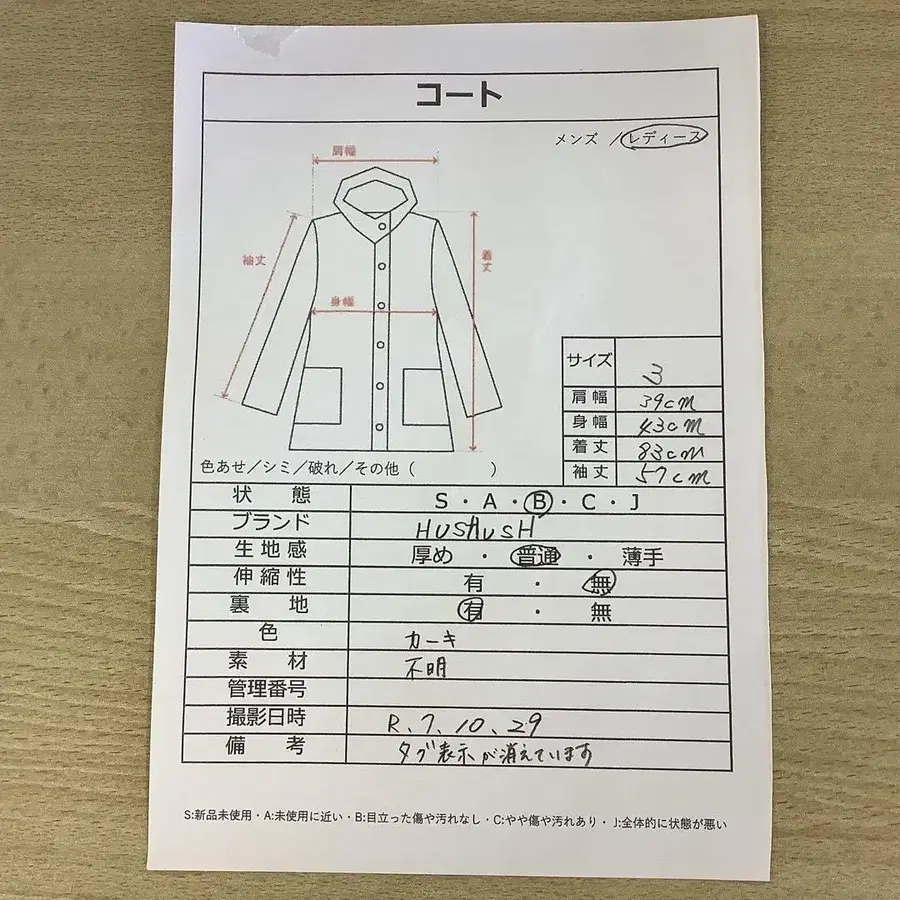 コート
メンズ / レディース
肩幅
袖丈
着丈
身幅
サイズ 3
肩幅 39cm
身幅 43cm
着丈 83cm
袖丈 57cm
色あせ／シミ／破れ／その他（　　　　）
状態 S・A・B・C・J
ブランド HUSHUSH
生地感 厚め・普通・薄手
伸縮性 有・無
裏地 有・無
色 カーキ
素材 不明
管理番号
撮影日時 R、7、10、29
備考 タグ表示が消えています
S:新品未使用・A:未使用に近い・B:目立った傷や汚れなし・C:やや傷や汚れあり・J:全体的に状態が悪い